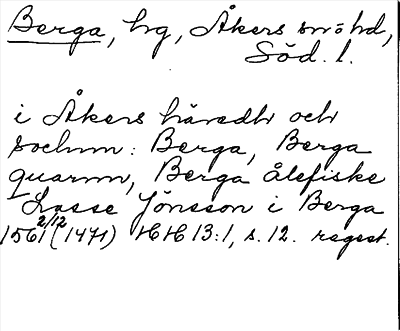 Berga, hg, Åkers sn o hd,
Söd. l.
i Åkers häredh och
sochnn: Berga, Berga
quarnn, Berga ålefiske
Lasse Jönsson i Berga
1561 2/12 (1471) HH 13:1, s. 12. regest.